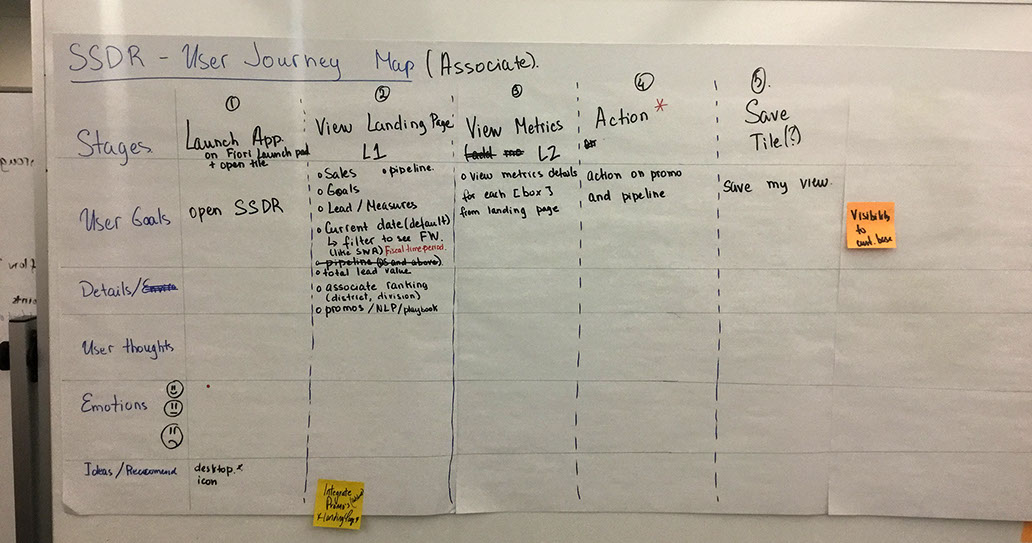 SSDR - User Journey Map (Associate).
① ② ③ ④ ⑤.
Stages
Launch App.
on Fiori Launch pad
+ open tile
View Landing Page
L1
View Metrics
L2
Action *
Save
Tile(?)
User Goals
open SSDR
o Sales o pipeline.
o Goals
o Lead / Measures
o Current date (default)
↳ filter to see FW.
(like SWA) Fiscal time period.
o pipeline (DS and above)
o total lead value
o associate ranking
(district, division)
o promos / NLP / playbook
o View metrics details
for each [box]
from landing page
action on promo
and pipeline
Save my view.
Visibility
to
cust base
Details/
User thoughts
Emotions
Ideas/Recommend
desktop.
icon
Integrate
Promos